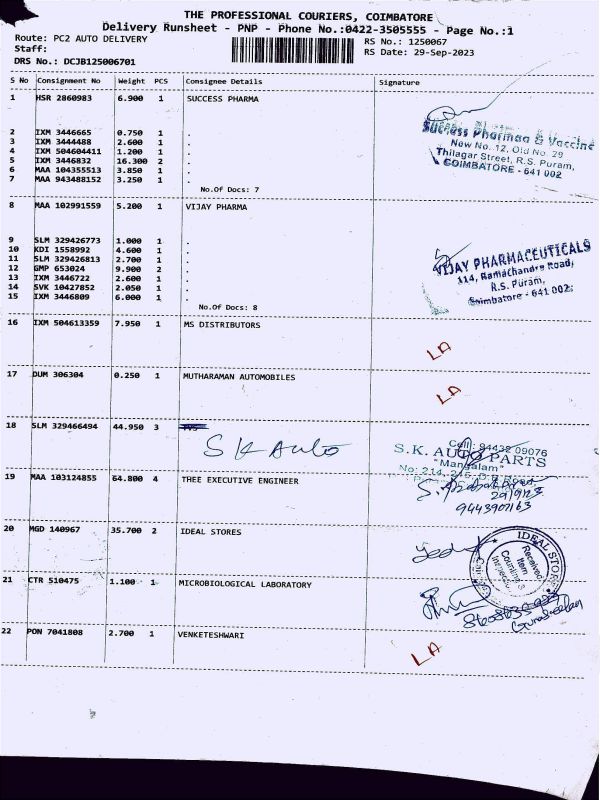 THE PROFESSIONAL COURIERS, COIMBATORE
Delivery Runsheet - PNP - Phone No.:0422-3505555 - Page No.:1
Route: PC2 AUTO DELIVERY
RS No.: 1250067
Staff:
RS Date: 29-Sep-2023
DRS No.: DCJB125006701
S No Consignment No Weight PCS Consignee Details Signature
1 HSR 2860983 6.900 1 SUCCESS PHARMA
2 IXM 3446665 0.750 1 .
3 IXM 3444488 2.600 1 .
4 IXM 504604411 1.200 1 .
5 IXM 3446832 16.300 2 .
6 MAA 104355513 3.850 1 .
7 MAA 943488152 3.250 1 .
No.Of Docs: 7
Success Pharmaa & Vaccine
New No. 12, Old No. 29
Thilagar Street, R.S. Puram,
COIMBATORE - 641 002
8 MAA 102991559 5.200 1 VIJAY PHARMA
9 SLM 329426773 1.000 1 .
10 KDI 1558992 4.600 1 .
11 SLM 329426813 2.700 1 .
12 GMP 653024 9.900 2 .
13 IXM 3446722 2.600 1 .
14 SVK 10427852 2.050 1 .
15 IXM 3446809 6.000 1 .
No.Of Docs: 8
VIJAY PHARMACEUTICALS
114, Ramachandra Road,
R.S. Puram,
Coimbatore - 641 002.
16 IXM 504613359 7.950 1 MS DISTRIBUTORS
LA
17 DUM 306304 0.250 1 MUTHARAMAN AUTOMOBILES
LA
18 SLM 329466494 44.950 3
S K Auto
Cell: 94432 09076
S.K. AUTO PARTS
"Mangalam"
No: 214,
19 MAA 103124855 64.800 4 THEE EXECUTIVE ENGINEER
29/9/23
9443907163
20 MGD 140967 35.700 2 IDEAL STORES
IDEAL STOR
Received
Item
21 CTR 510475 1.100 1 MICROBIOLOGICAL LABORATORY
22 PON 7041808 2.700 1 VENKETESHWARI
LA